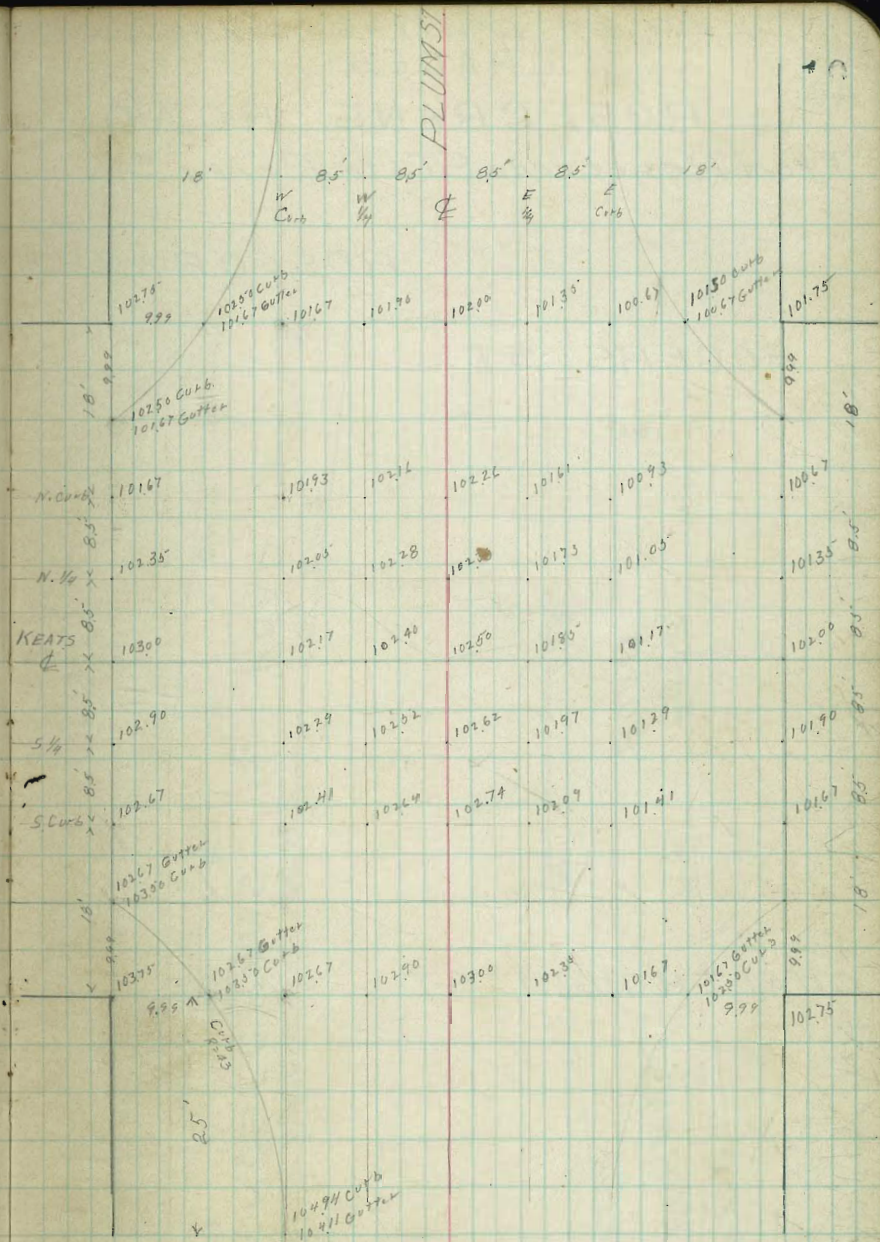 PLUM ST
18' 8.5' 8.5' 8.5' 8.5' 18'
W Curb W 1/4 ℄ E 1/4 E Curb
102.75 102.50 Curb 101.50 Curb 101.75
9.99 101.67 Gutter 101.67 101.90 102.00 101.35 100.67 100.67 Gutter
18' 9.99 9.99 18'
102.50 Curb
101.67 Gutter
N. Curb 101.67 101.93 102.16 102.26 101.61 100.93 100.67
8.5' 8.5'
N. 1/4 102.35 102.05 102.28 101.73 101.05 101.35
8.5' 8.5'
KEATS ℄ 103.00 102.17 102.40 102.50 101.85 101.17 102.00
8.5' 8.5'
S 1/4 102.90 102.29 102.52 102.62 101.97 101.29 101.90
8.5' 8.5
S. Curb 102.67 102.41 102.64 102.74 102.09 101.41 101.67
18' 18'
102.67 Gutter
103.50 Curb
9.99 102.67 Gutter 101.67 Gutter 9.99
103.75 103.50 Curb 102.67 102.90 103.00 102.35 101.67 102.50 Curb
9.99 9.99 102.75
Curb
25'
104.94 Curb
104.11 Gutter